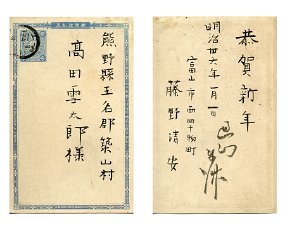 熊野縣玉名郡築山村
高田雲太郎様
恭賀新年
明治卅六年一月一日
富山市西四十物町
藤野清安